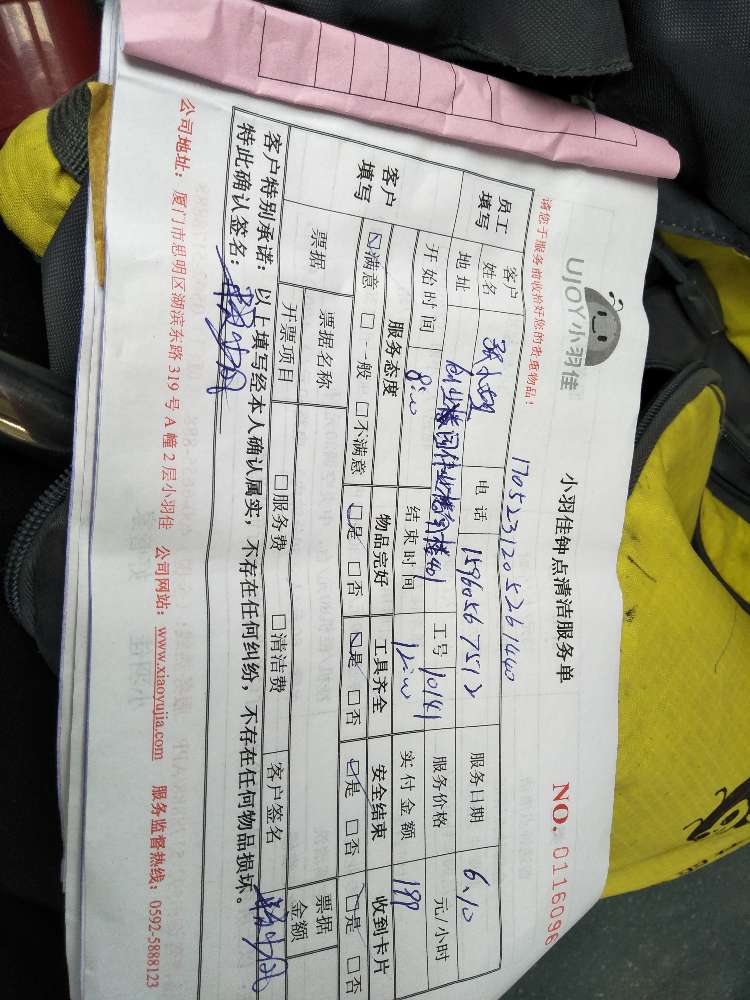 UJOY小羽佳
小羽佳钟点清洁服务单
NO. 0116096
请您于服务前收拾好您的贵重物品！
1705231205261440
员工填写 客户姓名 电话 15960567512 服务日期 6.10
地址 工号 10141 服务价格 元/小时
开始时间 8:00 结束时间 12:00 实付金额 199
客户填写 服务态度 物品完好 工具齐全 安全结束 收到卡片
☑满意 □一般 □不满意 ☑是 □否 ☑是 □否 ☑是 □否 ☑是 □否
票据 票据名称 □服务费 □清洁费 客户签名 票据金额
开票项目
客户特别承诺：以上填写经本人确认属实，不存在任何纠纷，不存在任何物品损坏。
特此确认签名：
公司地址：厦门市思明区湖滨东路319号A幢2层小羽佳 公司网站：www.xiaoyujia.com 服务监督热线：0592-5888123